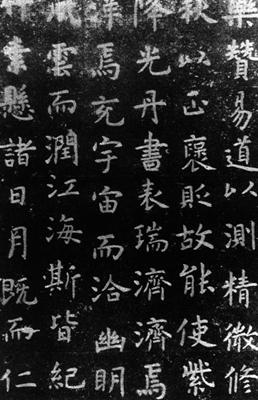 樂贊易道以測精微修
秋以正褒貶故能使紫
降光丹書表瑞濟濟焉
洋焉充宇宙而洽幽明
風雲而潤江海斯皆紀
竹素懸諸日月既而仁